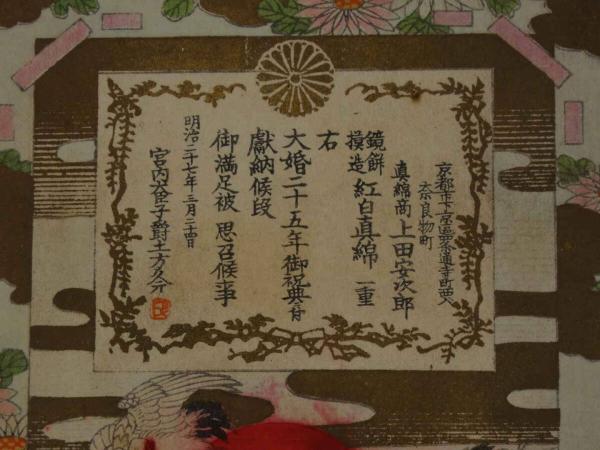 京都市下京區四条通寺町西入
奈良物町
真綿商 上田安次郎
鏡餅
摸造 紅白真綿 一重
右
大婚二十五年御祝典ニ付
獻納候段
御満足被 思召候事
明治二十七年三月二十四日
宮内大臣子爵土方久元